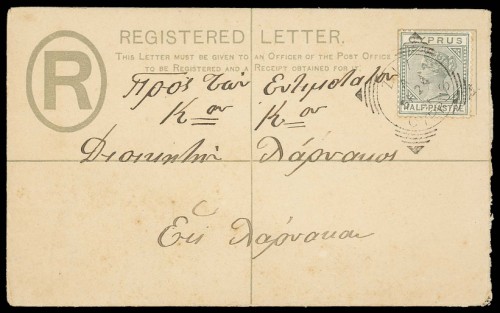 REGISTERED LETTER.
THIS LETTER MUST BE GIVEN TO AN OFFICER OF THE POST OFFICE
TO BE REGISTERED AND A RECEIPT OBTAINED FOR IT.
R
CYPRUS
HALF-PIASTRE
Πρὸς τὸν Ἐντιμότατον
Κον Κον
Διοικητὴν Λάρνακος
Εἰς Λάρνακαν